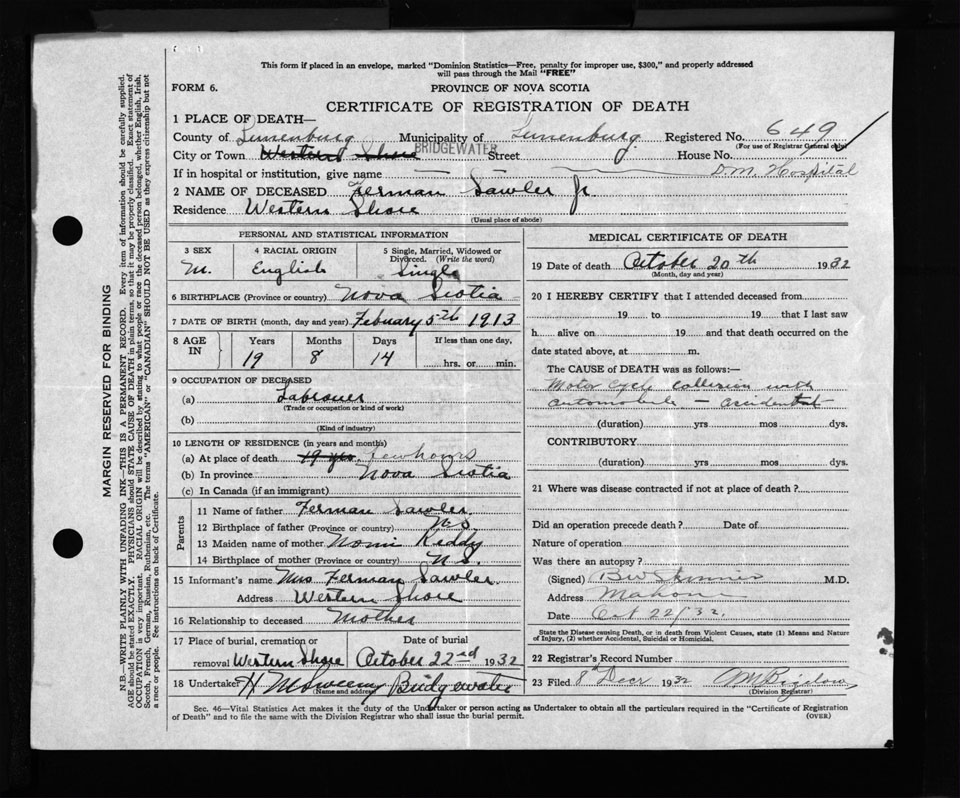 This form if placed in an envelope, marked "Dominion Statistics—Free, penalty for improper use, $300," and properly addressed
will pass through the Mail "FREE"
FORM 6.
PROVINCE OF NOVA SCOTIA
CERTIFICATE OF REGISTRATION OF DEATH
1 PLACE OF DEATH—
County of Lunenburg Municipality of Lunenburg Registered No. 649
(For use of Registrar General only)
City or Town Western Shore BRIDGEWATER Street House No.
If in hospital or institution, give name D.M. Hospital
2 NAME OF DECEASED Ferman Sawler Jr
Residence Western Shore
(Usual place of abode)
PERSONAL AND STATISTICAL INFORMATION
3 SEX 4 RACIAL ORIGIN 5 Single, Married, Widowed or
Divorced. (Write the word)
M. English Single
6 BIRTHPLACE (Province or country) Nova Scotia
7 DATE OF BIRTH (month, day and year) Febuary 5th 1913
8 AGE IN Years Months Days If less than one day,
19 8 14 hrs. or min.
9 OCCUPATION OF DECEASED
(a) Labrouer
(Trade or occupation or kind of work)
(b)
(Kind of industry)
10 LENGTH OF RESIDENCE (in years and months)
(a) At place of death 19 yrs few hours
(b) In province Nova Scotia
(c) In Canada (if an immigrant)
Parents
11 Name of father Ferman Sawler
12 Birthplace of father (Province or country) N S.
13 Maiden name of mother Nomi Reddy
14 Birthplace of mother (Province or country) N S.
15 Informant's name Mrs Ferman Sawler.
Address Western Shore
16 Relationship to deceased Mother
17 Place of burial, cremation or Date of burial
removal Western Shore October 22nd 1932
18 Undertaker H McSweeny Bridgewater
(Name and address)
MEDICAL CERTIFICATE OF DEATH
19 Date of death October 20th 1932
(Month, day and year)
20 I HEREBY CERTIFY that I attended deceased from
19 to 19 that I last saw
h alive on 19 and that death occurred on the
date stated above, at m.
The CAUSE of DEATH was as follows:—
Motor cycle collision with
automobile — accidental
(duration) yrs mos dys.
CONTRIBUTORY
(duration) yrs mos dys.
21 Where was disease contracted if not at place of death?
Did an operation precede death? Date of
Nature of operation
Was there an autopsy?
(Signed) M.D.
Address Mahone
Date Oct 22/32.
State the Disease causing Death, or in death from Violent Causes, state (1) Means and Nature
of Injury, (2) whether Accidental, Suicidal or Homicidal.
22 Registrar's Record Number
23 Filed 8th Decr 1932
(Division Registrar)
Sec. 46—Vital Statistics Act makes it the duty of the Undertaker or person acting as Undertaker to obtain all the particulars required in the "Certificate of Registration
of Death" and to file the same with the Division Registrar who shall issue the burial permit.
(OVER)
MARGIN RESERVED FOR BINDING
N.B.—WRITE PLAINLY WITH UNFADING INK—THIS IS A PERMANENT RECORD. Every item of information should be carefully supplied.
AGE should be stated EXACTLY. PHYSICIANS should STATE CAUSE OF DEATH in plain terms, so that it may be properly classified. Exact statement of
OCCUPATION is very important. RACIAL ORIGIN will be described by stating to what people or race the deceased person belonged, whether English, Irish,
Scotch, French, German, Russian, Ruthenian, etc. The terms "AMERICAN" or "CANADIAN" SHOULD NOT BE USED as they express citizenship but not
a race or people. See instructions on back of Certificate.